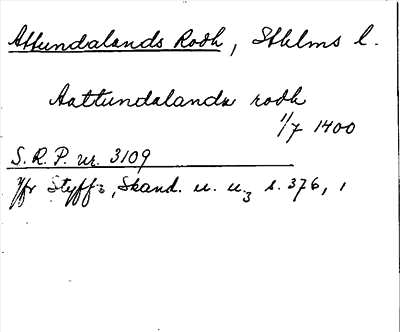 Attundalands Rodh, Sthlms l.
Aattundalands rodh
1/7 1400
S. R. P. nr. 3109
Jfr Styffe, Skand. u. u.3 s. 376,